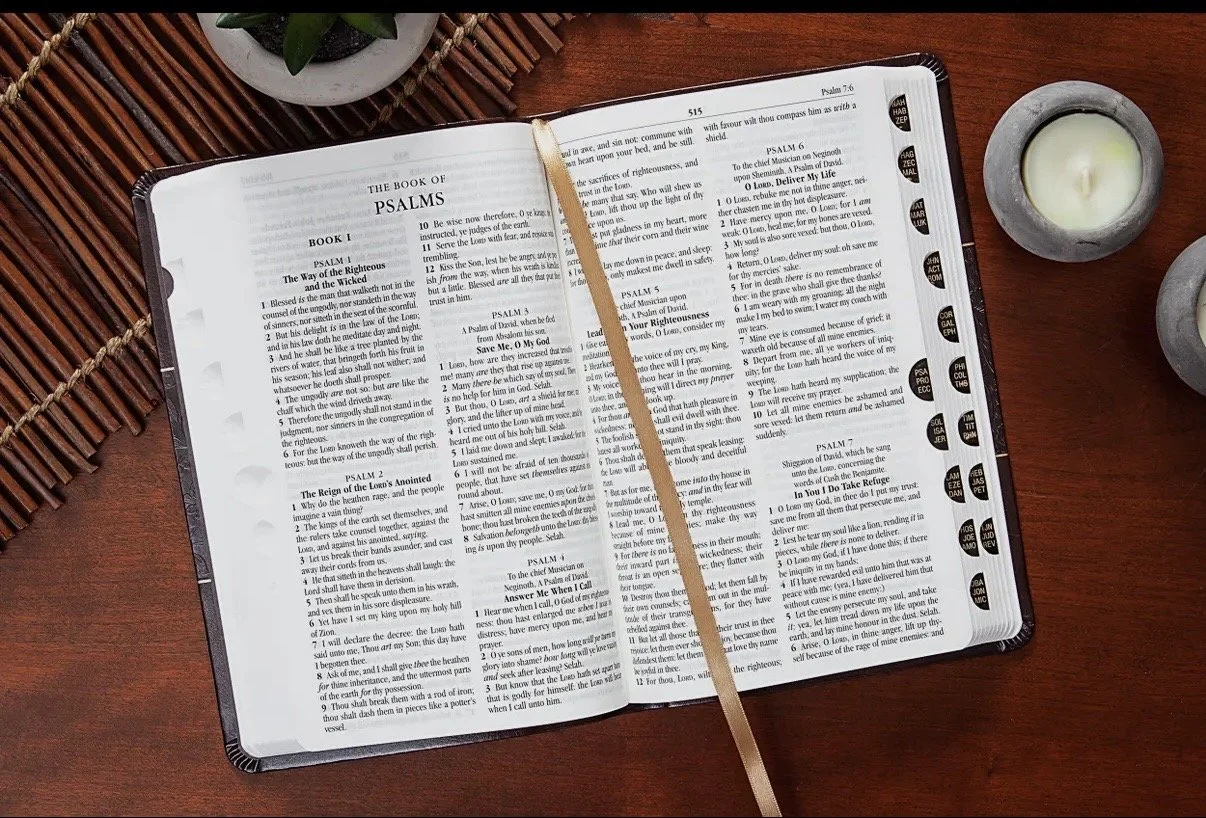 THE BOOK OF
PSALMS
BOOK I
PSALM 1
The Way of the Righteous
and the Wicked
1 Blessed is the man that walketh not in the
counsel of the ungodly, nor standeth in the way
of sinners, nor sitteth in the seat of the scornful.
2 But his delight is in the law of the LORD;
and in his law doth he meditate day and night.
3 And he shall be like a tree planted by the
rivers of water, that bringeth forth his fruit in
his season; his leaf also shall not wither; and
whatsoever he doeth shall prosper.
4 The ungodly are not so: but are like the
chaff which the wind driveth away.
5 Therefore the ungodly shall not stand in the
judgment, nor sinners in the congregation of
the righteous.
6 For the LORD knoweth the way of the righ-
teous: but the way of the ungodly shall perish.
PSALM 2
The Reign of the LORD's Anointed
1 Why do the heathen rage, and the people
imagine a vain thing?
2 The kings of the earth set themselves, and
the rulers take counsel together, against the
LORD, and against his anointed, saying,
3 Let us break their bands asunder, and cast
away their cords from us.
4 He that sitteth in the heavens shall laugh: the
Lord shall have them in derision.
5 Then shall he speak unto them in his wrath,
and vex them in his sore displeasure.
6 Yet have I set my king upon my holy hill
of Zion.
7 I will declare the decree: the LORD hath
said unto me, Thou art my Son; this day have
I begotten thee.
8 Ask of me, and I shall give thee the heathen
for thine inheritance, and the uttermost parts
of the earth for thy possession.
9 Thou shalt break them with a rod of iron;
thou shalt dash them in pieces like a potter's
vessel.
10 Be wise now therefore, O ye kings: be
instructed, ye judges of the earth.
11 Serve the LORD with fear, and rejoice with
trembling.
12 Kiss the Son, lest he be angry, and ye per-
ish from the way, when his wrath is kindled
but a little. Blessed are all they that put their
trust in him.
PSALM 3
A Psalm of David, when he fled
from Absalom his son.
Save Me, O My God
1 LORD, how are they increased that trouble
me! many are they that rise up against me.
2 Many there be which say of my soul, There
is no help for him in God. Selah.
3 But thou, O LORD, art a shield for me; my
glory, and the lifter up of mine head.
4 I cried unto the LORD with my voice, and he
heard me out of his holy hill. Selah.
5 I laid me down and slept; I awaked; for the
LORD sustained me.
6 I will not be afraid of ten thousands of
people, that have set themselves against me
round about.
7 Arise, O LORD; save me, O my God: for thou
hast smitten all mine enemies upon the cheek
bone; thou hast broken the teeth of the ungodly.
8 Salvation belongeth unto the LORD: thy bless-
ing is upon thy people. Selah.
PSALM 4
To the chief Musician on
Neginoth, A Psalm of David.
Answer Me When I Call
1 Hear me when I call, O God of my righteous-
ness: thou hast enlarged me when I was in
distress; have mercy upon me, and hear my
prayer.
2 O ye sons of men, how long will ye turn my
glory into shame? how long will ye love vanity,
and seek after leasing? Selah.
3 But know that the LORD hath set apart him
that is godly for himself: the LORD will hear
when I call unto him.
515
Psalm 7:6
and in awe, and sin not: commune with
own heart upon your bed, and be still.
the sacrifices of righteousness, and
trust in the LORD.
be many that say, Who will shew us
LORD, lift thou up the light of thy
upon us.
put gladness in my heart, more
time that their corn and their wine
lay me down in peace, and sleep:
only makest me dwell in safety.
PSALM 5
chief Musician upon
A Psalm of David.
Lead in Your Righteousness
words, O LORD, consider my
the voice of my cry, my King,
and my God: thee will I pray.
3 My voice thou hear in the morning,
O LORD; in the will I direct my prayer
unto thee, and look up.
4 For thou a God that hath pleasure in
wickedness: shall evil dwell with thee.
5 The foolish not stand in thy sight: thou
hatest all workers iniquity.
6 Thou shalt destroy them that speak leasing:
the LORD will abhor the bloody and deceitful
7 But as for me, come into thy house in
the multitude of thy mercy: and in thy fear will
I worship toward thy holy temple.
8 Lead me, O LORD, in thy righteousness
because of mine enemies; make thy way
straight before my
9 For there is no faithfulness in their mouth;
their inward part is wickedness; their
throat is an open sepulchre; they flatter with
their tongue.
10 Destroy thou them, God; let them fall by
their own counsels; cast them out in the mul-
titude of their transgressions; for they have
rebelled against thee.
11 But let all those that put their trust in thee
rejoice: let them ever shout for joy, because thou
defendest them: let them that love thy name
be joyful in thee.
12 For thou, LORD, wilt the righteous;
with favour wilt thou compass him as with a
shield.
PSALM 6
To the chief Musician on Neginoth
upon Sheminith, A Psalm of David.
O LORD, Deliver My Life
1 O LORD, rebuke me not in thine anger, nei-
ther chasten me in thy hot displeasure.
2 Have mercy upon me, O LORD; for I am
weak: O LORD, heal me; for my bones are vexed.
3 My soul is also sore vexed: but thou, O LORD,
how long?
4 Return, O LORD, deliver my soul: oh save me
for thy mercies' sake.
5 For in death there is no remembrance of
thee: in the grave who shall give thee thanks?
6 I am weary with my groaning; all the night
make I my bed to swim; I water my couch with
my tears.
7 Mine eye is consumed because of grief; it
waxeth old because of all mine enemies.
8 Depart from me, all ye workers of iniq-
uity; for the LORD hath heard the voice of my
weeping.
9 The LORD hath heard my supplication; the
LORD will receive my prayer.
10 Let all mine enemies be ashamed and
sore vexed: let them return and be ashamed
suddenly.
PSALM 7
Shiggaion of David, which he sang
unto the LORD, concerning the
words of Cush the Benjamite.
In You I Do Take Refuge
1 O LORD my God, in thee do I put my trust:
save me from all them that persecute me, and
deliver me:
2 Lest he tear my soul like a lion, rending it in
pieces, while there is none to deliver.
3 O LORD my God, if I have done this; if there
be iniquity in my hands;
4 If I have rewarded evil unto him that was at
peace with me; (yea, I have delivered him that
without cause is mine enemy:)
5 Let the enemy persecute my soul, and take
it; yea, let him tread down my life upon the
earth, and lay mine honour in the dust. Selah.
6 Arise, O LORD, in thine anger, lift up thy-
self because of the rage of mine enemies: and
NAH
HAB
ZEP
HAG
ZEC
MAL
MAT
MAR
LUK
JHN
ACT
ROM
COR
GAL
EPH
PSA
PRO
ECC
PHI
COL
THS
SOL
ISA
JER
TIM
TIT
PHN
LAM
EZE
DAN
HEB
JAS
PET
HOS
JOE
AMO
JJN
JUD
REV
OBA
JON
MIC